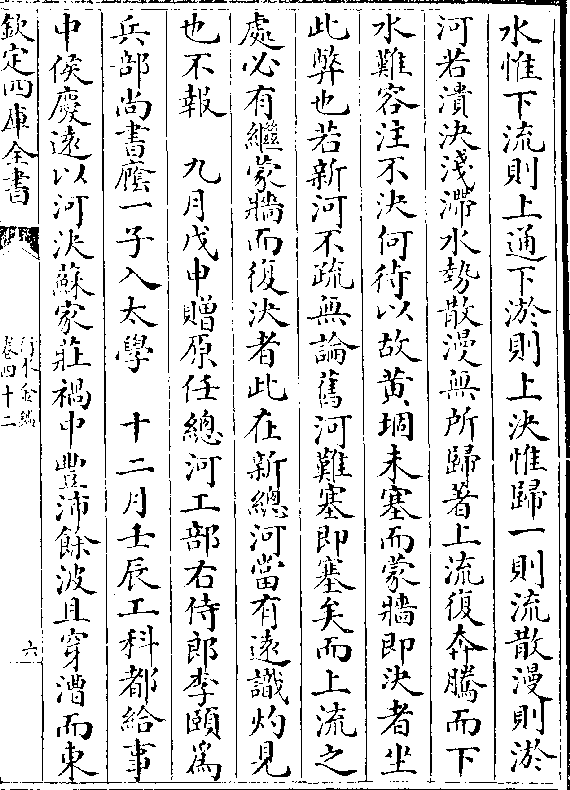 水惟下流則上通下淤則上決惟歸一則流散漫則淤
河若潰決淺滯水勢散漫無所歸著上流復奔騰而下
水難容注不決何待以故黄堌未塞而蒙牆即決者坐
此弊也若新河不疏無論舊河難塞即塞矣而上流之
處必有繼蒙牆而復決者此在新總河當有遠識灼見
也不報　九月戊申贈原任總河工部右侍郎李頤為
兵部尚書廕一子入太學　十二月壬辰工科都給事
中侯慶遠以河決蘇家莊禍中豐沛餘波且穿漕而東
欽定四庫全書
行水金鑑
卷四十二
六